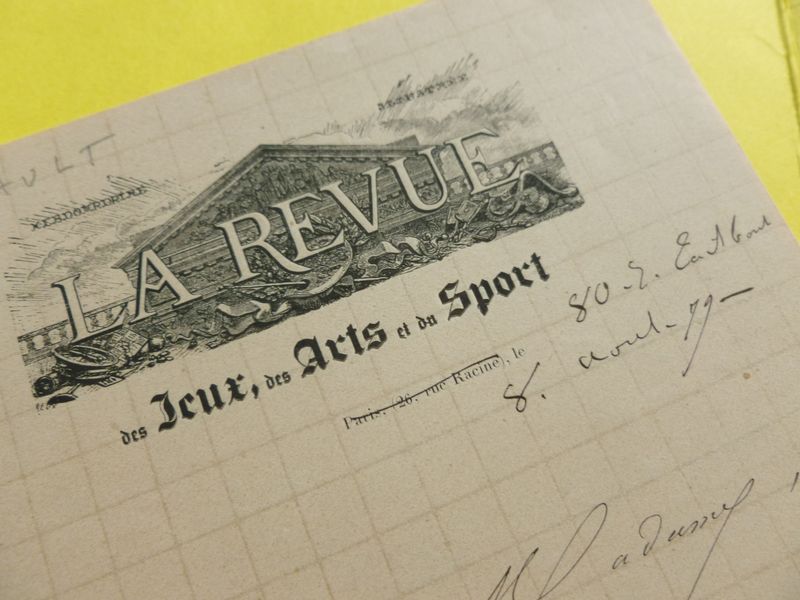 AULT
HEBDOMADAIRE
LA REVUE
des Jeux, des Arts et du Sport
80 r. Taitbout
Paris, (26, rue Racine), le
8. aout-79-
Madame,